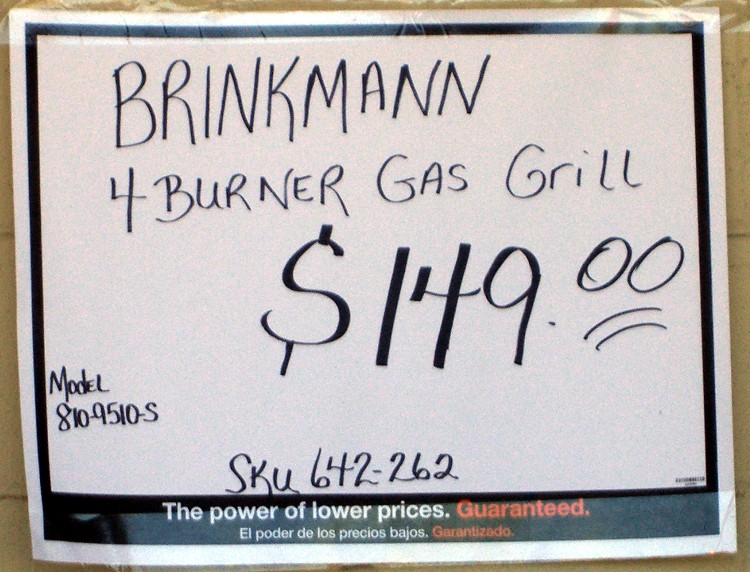 BRINKMANN
4 BURNER GAS Grill
$149.00
Model
810-9510-S
SKU 642-262
The power of lower prices. Guaranteed.
El poder de los precios bajos. Garantizado.